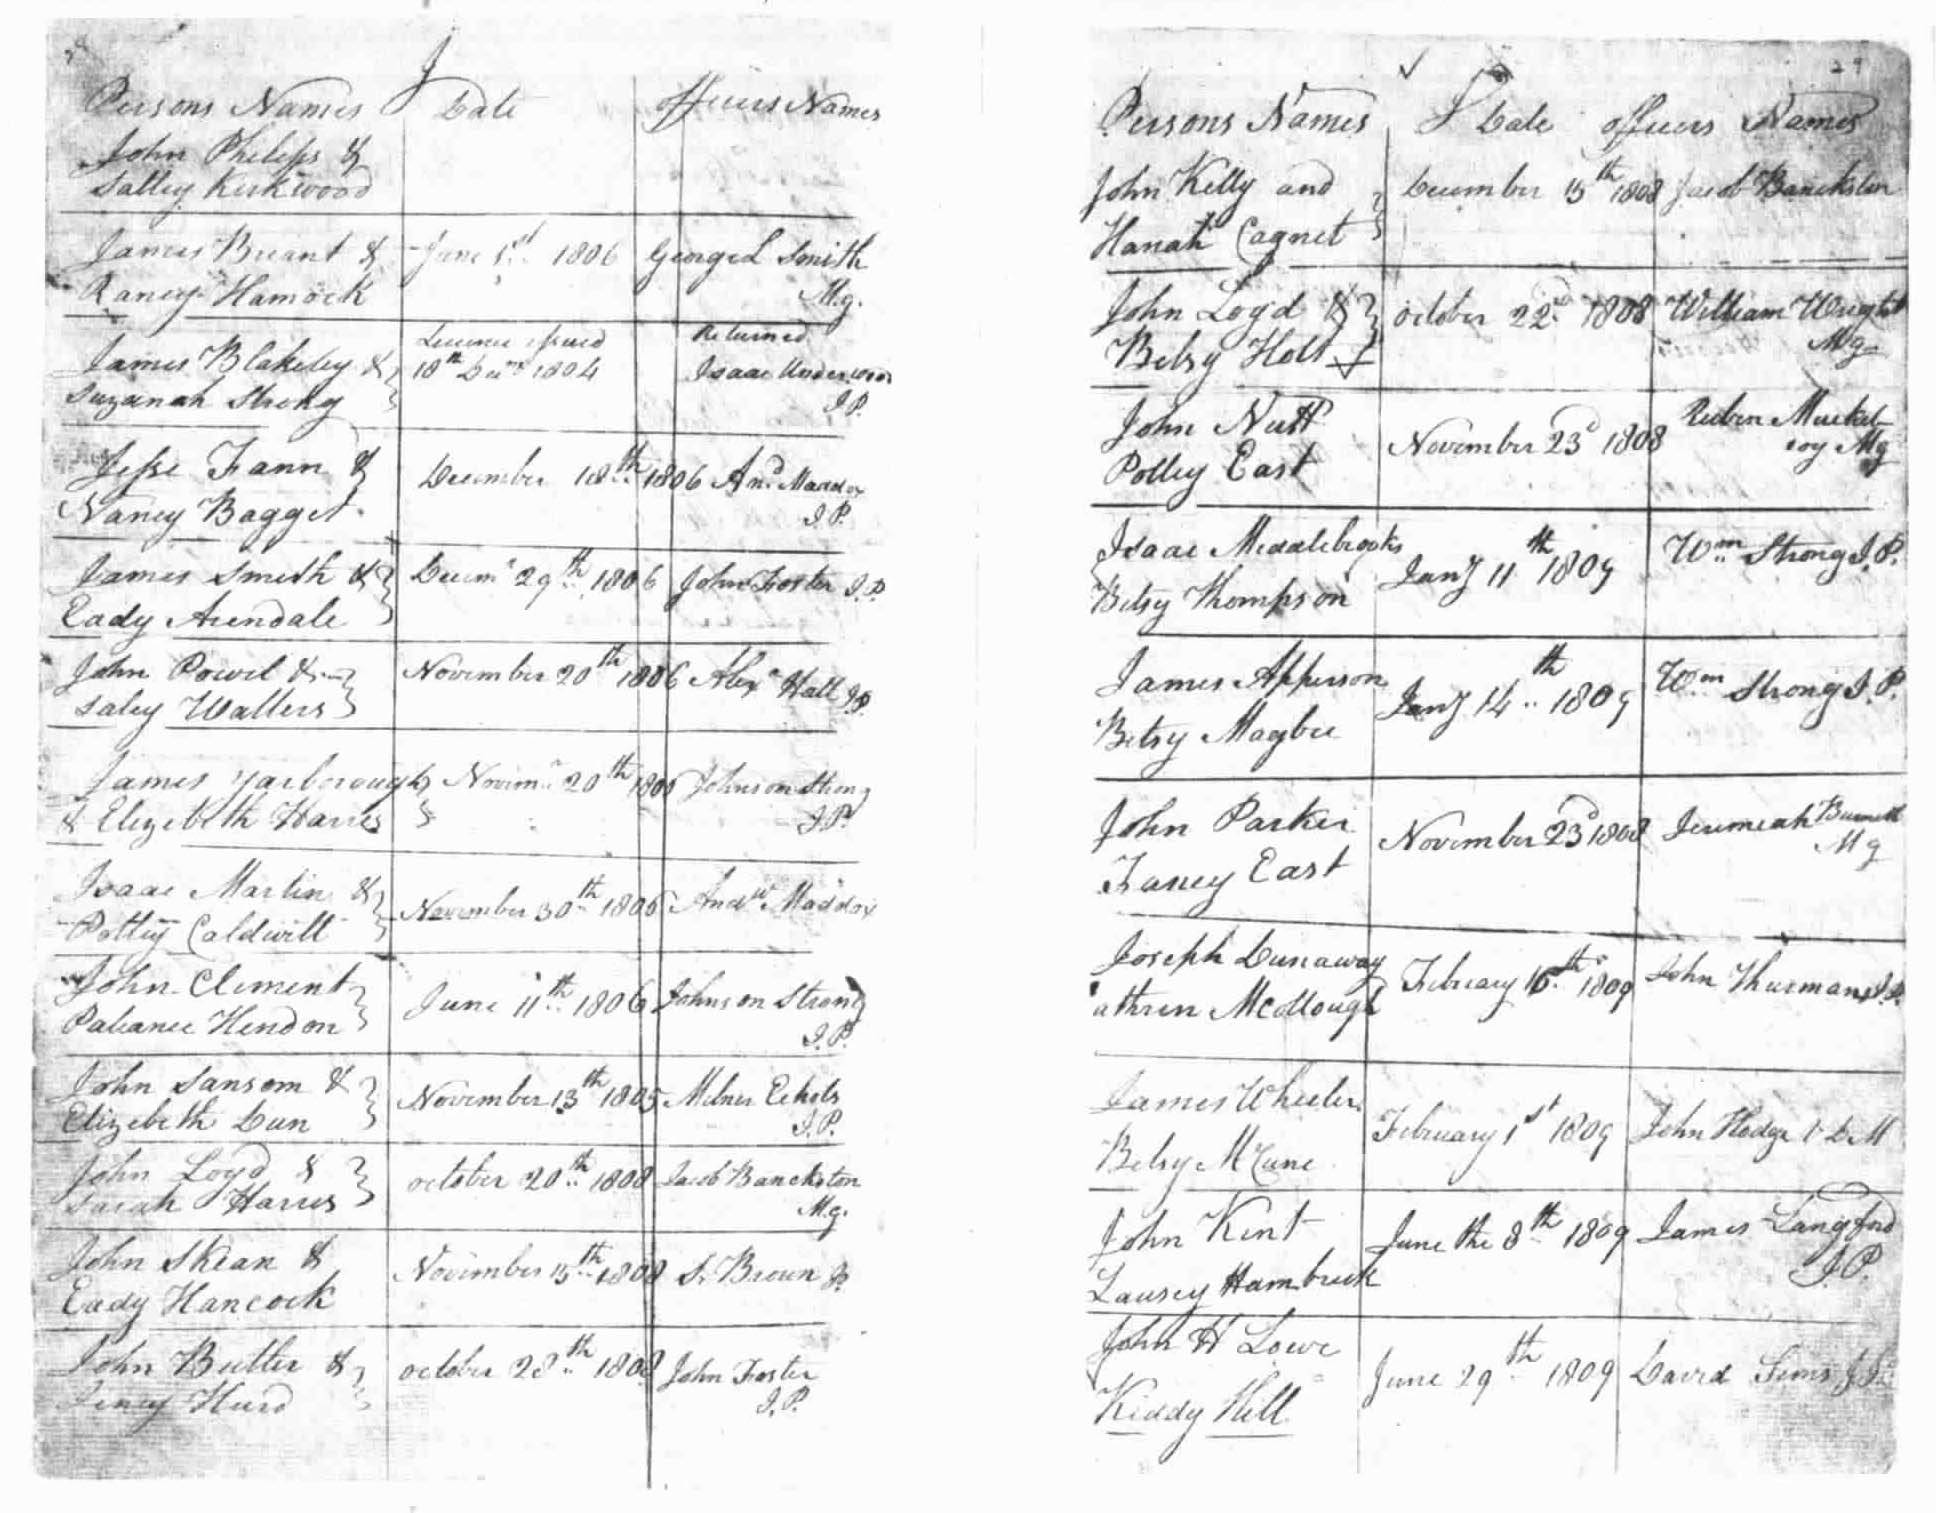 J
Persons Names Date officers Names
John Philips &
Salley Kirkwood
James Briant & June 1st 1806 George L Smith
Raney Hamock M.g.
Licence issued Returned
James Blakeley & 18th Decmr 1804 Isaac Underwood
Suzanah Strong J.P.
Jesse Fann & December 18th 1806 And Maddox
Nancy Bagget J.P.
James Smith & Decemr 29th 1806 John Foster J.P.
Eady Arendale
John Powel & November 20th 1806 Alexr Hall J.P.
Saley Walters
James Yarborough Novemr 20th 1806 Johnson Strong
& Elizebeth Harris J.P.
Isaac Martin & November 30th 1806 Andw Maddox
Polley Caldwill
John Clement June 11th 1806 Johnson Strong
Hendon J.P.
John Sansom & November 13th 1805 Milner Echols
Elizebeth Dun J.P.
John Loyd & october 20th 1808 Jacob Banckston
Sarah Harris M.g.
John Skean & November 15th 1808 S. Brown
Eady Hancock
John Butler & october 28th 1808 John Foster
Jency Hurd J.P.
29
Persons Names J Date officers Names
John Kelly and December 15th 1808 Jacob Banckston
Hanah Cagnet
John Loyd & october 22d 1808 William Wright
Betsy Holt Mg
John Nutt November 23d 1808 Reuben Muckel
Polley East roy Mg
Isaac Meddlebrooks Jany 11th 1809 Wm Strong J.P.
Betsy Thompson
James Apperson Jany 14th 1809 Wm Strong J.P.
Betsy Magbee
John Parker November 23d 1808 Jeremeah Burnett
Faney East Mg
Joseph Dunaway February 16th 1809 John Thurman J.P.
athren Mcollough
James Wheeler February 1st 1809 John Hodge V D M
Betsy McCune
John Kent June the 8th 1809 James Langford
Lausey Hambrick J.P.
John H Lowe June 29th 1809 David Sims
Kiddy Hill